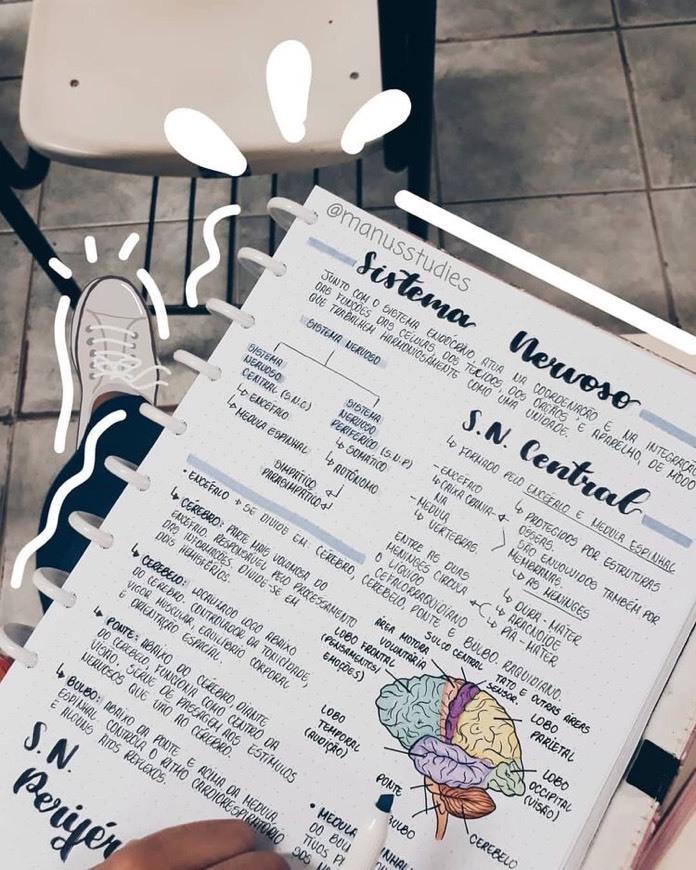 @manusstudies
Sistema Nervoso
JUNTO COM O SISTEMA ENDÓCRINO ATUA NA COORDENAÇÃO E NA INTEGRAÇÃO
DAS FUNÇÕES DAS CÉLULAS, DOS TECIDOS, DOS ÓRGÃOS E APARELHO, DE MODO
QUE TRABALHEM HARMONIOSAMENTE COMO UMA UNIDADE.
SISTEMA NERVOSO
SISTEMA
NERVOSO
CENTRAL (S.N.C)
↳ ENCÉFALO
↳ MEDULA ESPINHAL
SISTEMA
NERVOSO
PERIFÉRICO (S.N.P)
↳ SOMÁTICO
↳ AUTÔNOMO
SIMPÁTICO
PARASIMPÁTICO
S.N. Central
↳ FORMADO PELO ENCÉFALO E MEDULA ESPINHAL
- ENCÉFALO
↳ CAIXA CRANIANA
- MEDULA
↳ VERTEBRAS
↳ PROTEGIDOS POR ESTRUTURAS
ÓSSEAS.
SÃO ENVOLVIDOS TAMBÉM POR
MEMBRANAS
↳ AS MENINGES
↳ DURA-MATER
↳ ARACNOIDE
↳ PIA-MATER
ENTRE AS DUAS
MENINGES CIRCULA
O LÍQUIDO
CEFALORRAQUIDIANO
• ENCÉFALO → SE DIVIDE EM CÉREBRO, CEREBELO, PONTE E BULBO. RAQUIDIANO.
↳ CÉREBRO: PARTE MAIS VOLUMOSA DO
ENCÉFALO. RESPONSÁVEL PELO PROCESSAMENTO
DAS INFORMAÇÕES. DIVIDE-SE EM
DOIS HEMISFÉRIOS.
↳ CEREBELO: LOCALIZADO LOGO ABAIXO
DO CÉREBRO, CONTROLADOR DA TONICIDADE,
VIGOR MUSCULAR, EQUILÍBRIO CORPORAL
E ORIENTAÇÃO ESPACIAL.
↳ PONTE: ABAIXO DO CÉREBRO, DIANTE
DO CEREBELO, FUNCIONA COMO CENTRO DA
VISÃO, SERVE DE PASSAGEM AOS ESTÍMULOS
NERVOSOS QUE VÃO AO CÉREBRO.
↳ BULBO: ABAIXO DA PONTE E ACIMA DA MEDULA
ESPINHAL CONTROLA O RITMO CARDIORESPIRATÓRIO
E ALGUNS ATOS REFLEXOS.
ÁREA MOTORA
VOLUNTÁRIA
SULCO CENTRAL
TATO E OUTRAS ÁREAS
SENSOR.
LOBO FRONTAL
(PENSAMENTOS/
EMOÇÕES)
LOBO
PARIETAL
LOBO
TEMPORAL
(AUDIÇÃO)
LOBO
OCCIPITAL
(VISÃO)
PONTE
BULBO
CEREBELO
S.N.
Perifér
• MEDULA